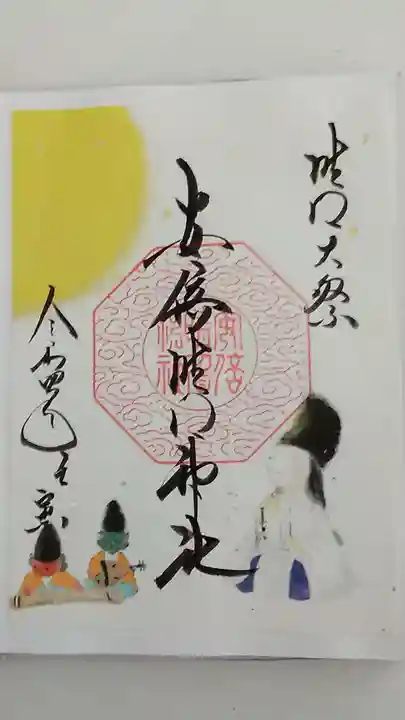 晴明大祭
安倍晴明神社
安倍晴明神社
令和四年壬寅